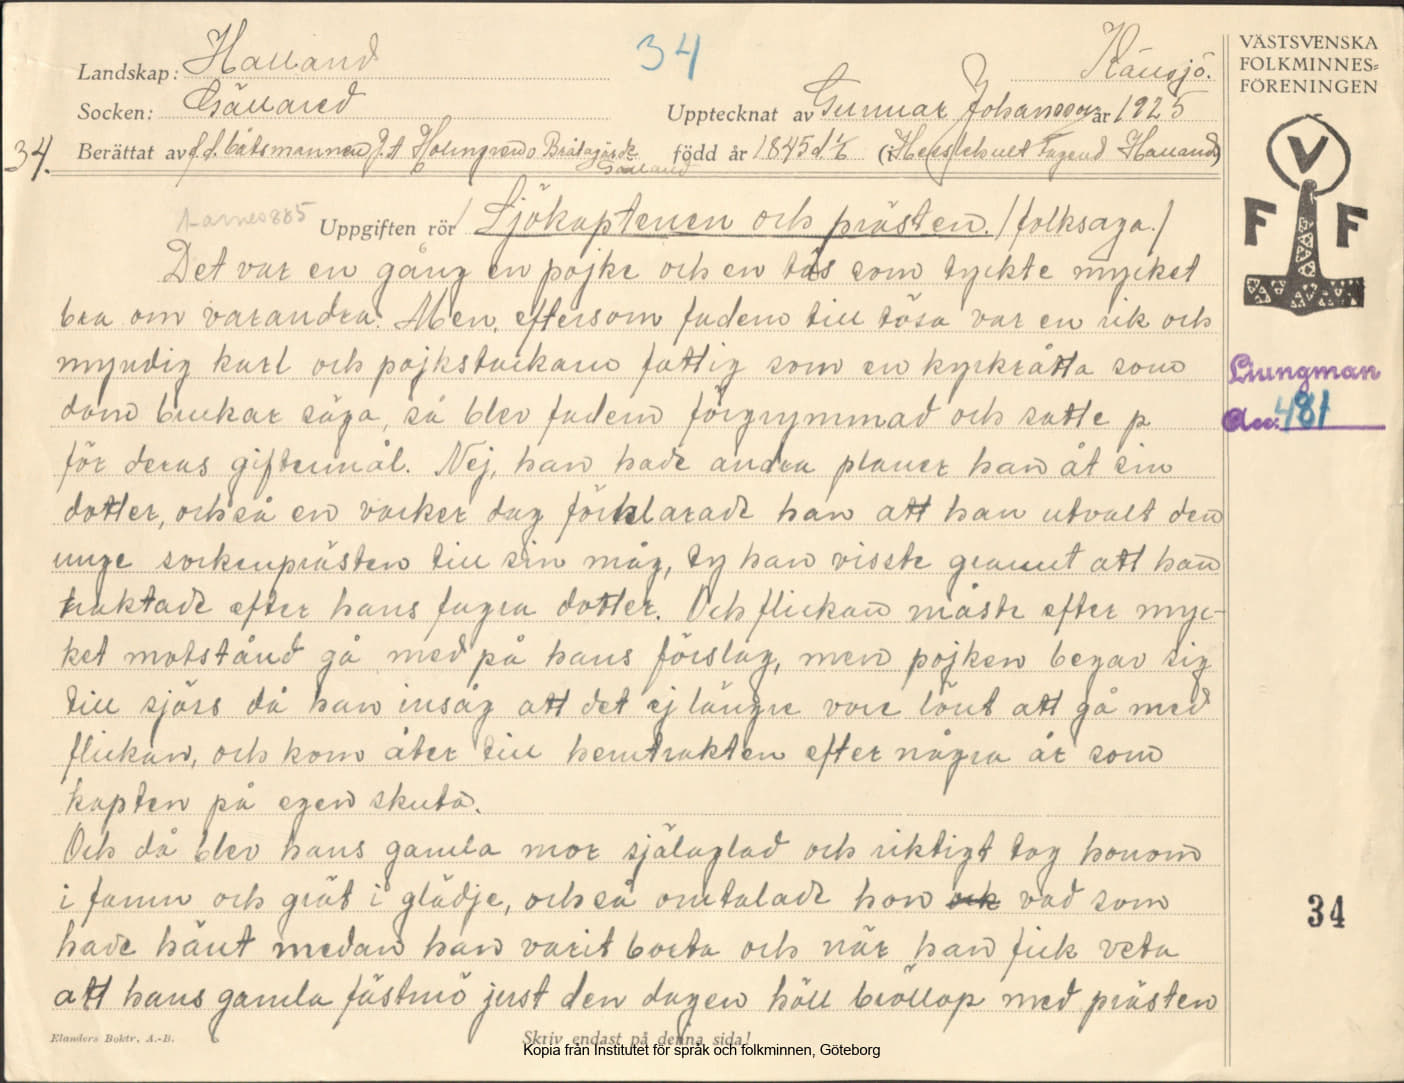 34
Landskap: Halland
Känsjö.
Socken: Gällared
Upptecknat av Gunnar Johansson år 1925
34. Berättat av f.d. båtsmannen J A Holmgren
född år 1845 d. 1/6 (i Fagered Halland)
Gällared
Aarne 885
Uppgiften rör / Sjökaptenen och prästen. / folksaga. /
Det var en gång en pojke och en tös som tyckte mycket
bra om varandra. Men, eftersom fadern till tösa var en rik och
myndig karl och pojkstackarn fattig som en kyrkråtta som
dom brukar säga, så blev fadern förgrymmad och satte p
för deras giftermål. Nej, han hade andra planer han åt sin
dotter, och så en vacker dag förklarade han att han utvalt den
unge sockenprästen till sin måg, ty han visste grannt att han
traktade efter hans fagra dotter. Och flickan måste efter myc-
ket motstånd gå med på hans förslag, men pojken begav sig
till sjörs då han insåg att det ej längre vore lönt att gå med
flickan, och kom åter till hemtrakten efter några år som
kapten på egen skuta.
Och då blev hans gamla mor själaglad och riktigt tog honom
i famn och grät i glädje, och så omtalade hon och vad som
hade hänt medan han varit borta och när han fick veta
att hans gamla fästmö just den dagen höll bröllop med prästen
Elanders Boktr. A.-B.
Skriv endast på denna sida!
Kopia från Institutet för språk och folkminnen, Göteborg
VÄSTSVENSKA
FOLKMINNES=
FÖRENINGEN
V
F F
Ljungman
Acc: 481
34